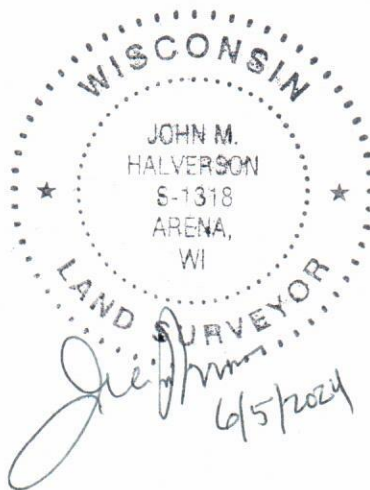 WISCONSIN
JOHN M.
HALVERSON
S-1318
ARENA,
WI
LAND SURVEYOR
6/5/2024